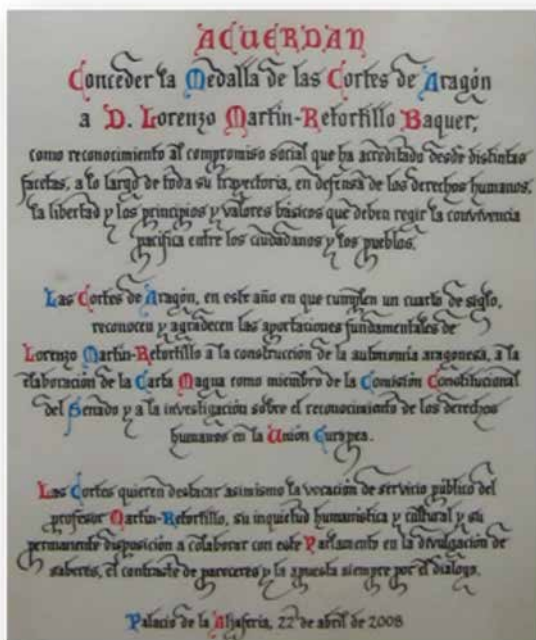 ACUERDAN
Conceder la Medalla de las Cortes de Aragón
a D. Lorenzo Martín-Retortillo Baquer,
como reconocimiento al compromiso social que ha acreditado desde distintas
facetas, a lo largo de toda su trayectoria, en defensa de los derechos humanos,
la libertad y los principios y valores básicos que deben regir la convivencia
pacífica entre los ciudadanos y los pueblos.
Las Cortes de Aragón, en este año en que cumplen un cuarto de siglo,
reconocen y agradecen las aportaciones fundamentales de
Lorenzo Martín-Retortillo a la construcción de la autonomía aragonesa, a la
elaboración de la Carta Magna como miembro de la Comisión Constitucional
del Senado y a la investigación sobre el reconocimiento de los derechos
humanos en la Unión Europea.
Las Cortes quieren destacar asimismo la vocación de servicio público del
profesor Martín-Retortillo, su inquietud humanística y cultural y su
permanente disposición a colaborar con este Parlamento en la divulgación de
saberes, el contraste de pareceres y la apuesta siempre por el diálogo.
Palacio de la Aljafería, 22 de abril de 2008